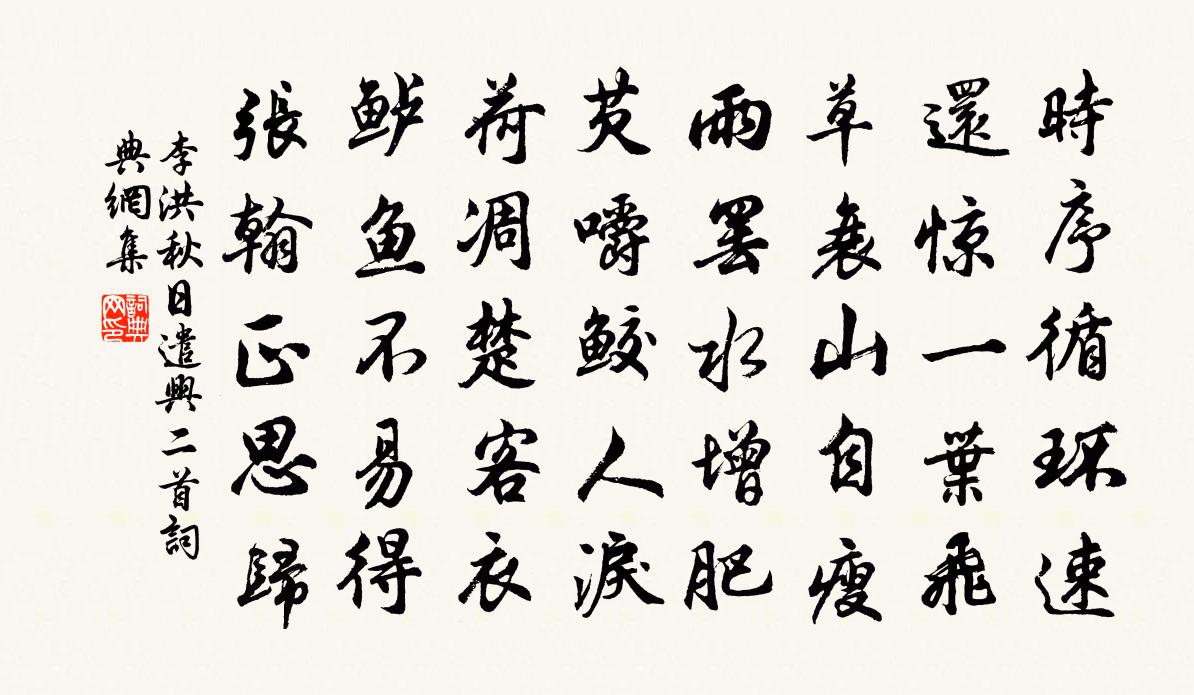 時序循环速
還惊一葉飛
草衰山自瘦
雨罢水增肥
芡嚼鲛人淚
荷凋楚客衣
鲈魚不易得
張翰正思歸
李洪秋日遣興二首詞
典網集
詞典
网印